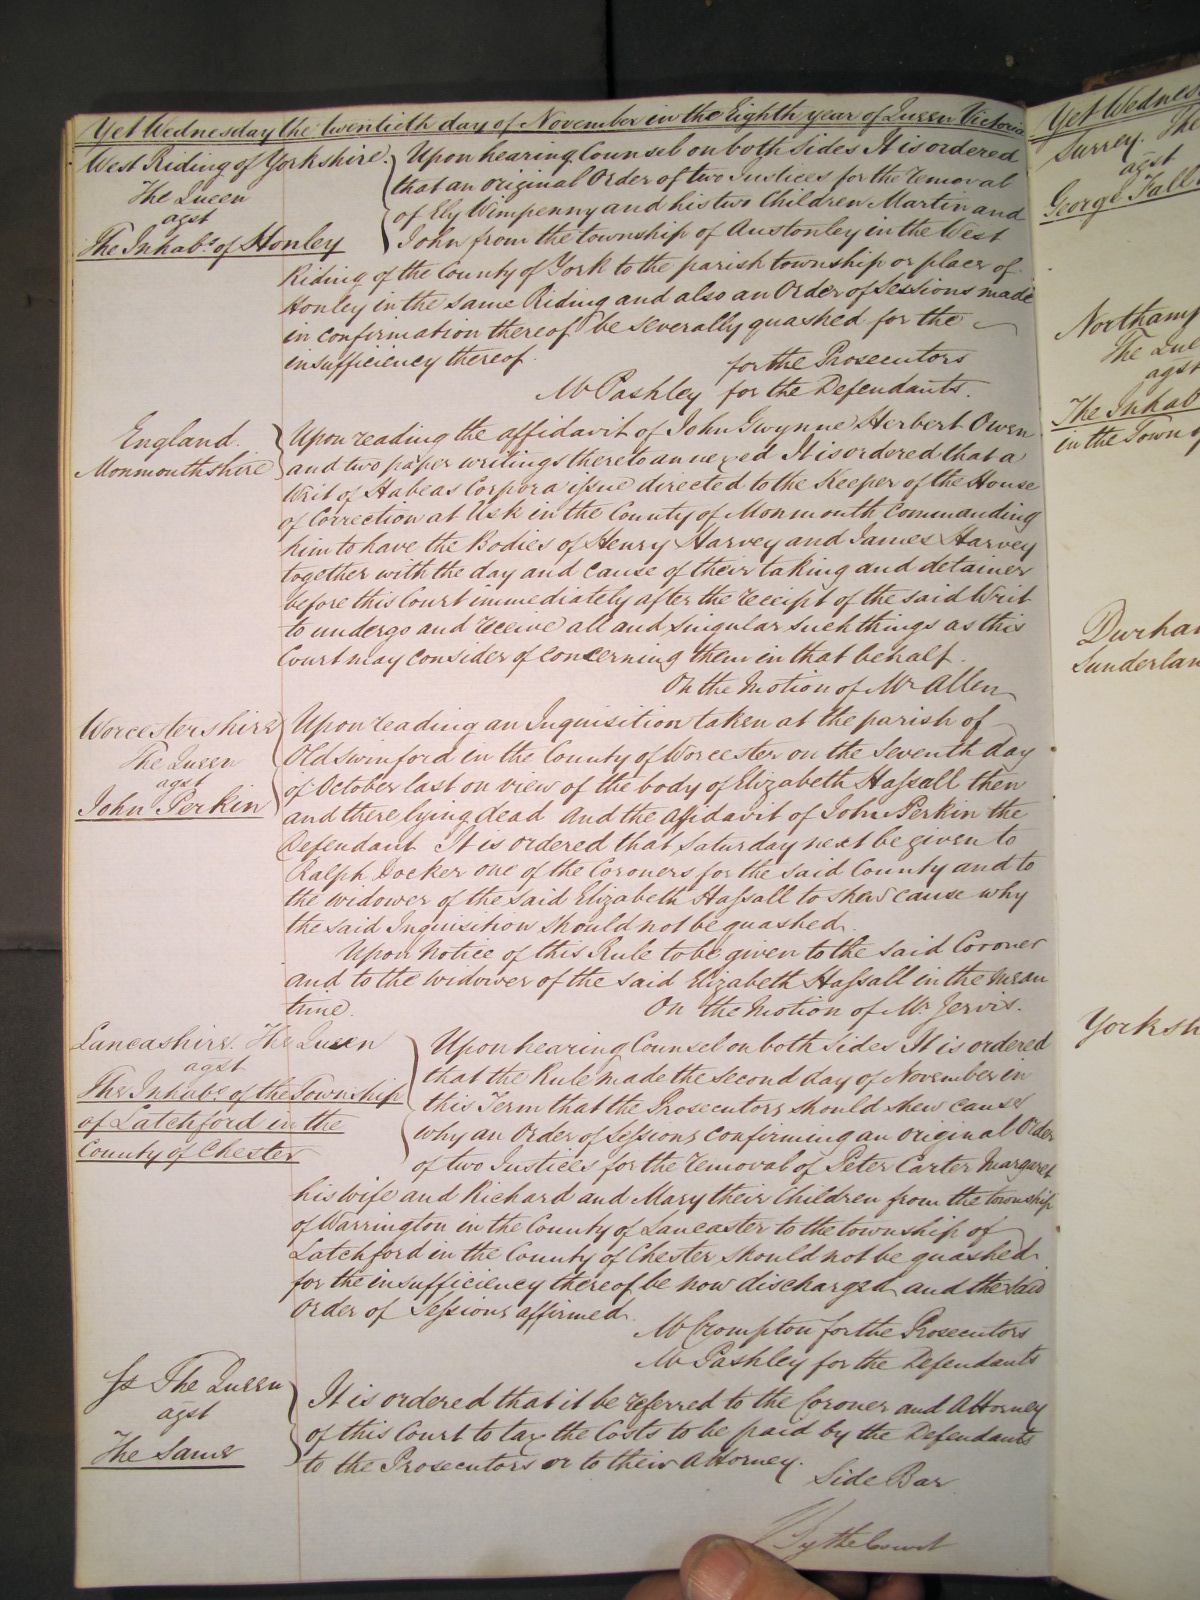 Yet Wednesday the twentieth day of November in the Eighth year of Queen Victoria
West Riding of Yorkshire.
The Queen
agst
The Inhabts. of Honley
Upon hearing Counsel on both sides It is ordered
that an original Order of two Justices for the removal
of Ely Wimpenny and his two Children Martin and
John from the township of Austonley in the West
Riding of the County of York to the parish township or place of
Honley in the same Riding and also an Order of Sessions made
in confirmation thereof be severally quashed for the
insufficiency thereof.
for the Prosecutors
Mr Pashley for the Defendants.
England.
Monmouthshire
Upon reading the affidavit of John Gwynne Herbert Owen
and two paper writings thereto annexed It is ordered that a
Writ of Habeas Corpora issue directed to the Keeper of the House
of Correction at Usk in the County of Monmouth commanding
him to have the Bodies of Henry Harvey and James Harvey
together with the day and cause of their taking and detainer
before this Court immediately after the receipt of the said Writ
to undergo and receive all and singular such things as this
Court may consider of concerning them in that behalf.
On the Motion of Mr Allen
Worcestershire
The Queen
agst
John Perkin
Upon reading an Inquisition taken at the parish of
Oldswinford in the County of Worcester on the seventh day
of October last on view of the body of Elizabeth Hassall then
and there lying dead And the affidavit of John Perkin the
Defendant It is ordered that Saturday next be given to
Ralph Docker one of the Coroners for the said County and to
the widower of the said Elizabeth Hassall to shew cause why
the said Inquisition should not be quashed.
Upon Notice of this Rule to be given to the said Coroner
and to the widower of the said Elizabeth Hassall in the mean
time. On the Motion of Mr Jervis.
Lancashire. The Queen
agst
The Inhabts. of the Township
of Latchford in the
County of Chester
Upon hearing Counsel on both sides It is ordered
that the Rule made the second day of November in
this Term that the Prosecutors should shew cause
why an Order of Sessions confirming an original Order
of two Justices for the removal of Peter Carter Margaret
his wife and Richard and Mary their Children from the township
of Warrington in the County of Lancaster to the township of
Latchford in the County of Chester should not be quashed
for the insufficiency thereof be now discharged and the said
Order of Sessions affirmed.
Mr Crompton for the Prosecutors
Mr Pashley for the Defendants
The Queen
agst
The Same
It is ordered that it be referred to the Coroner and Attorney
of this Court to tax the Costs to be paid by the Defendants
to the Prosecutors or to their Attorney.
Side Bar
By the Court
Yet Wednes
Surrey. The
agst
George
Northamp
The Que
agst
The Inhab
in the Town of
Durham
Sunderlan
Yorksh